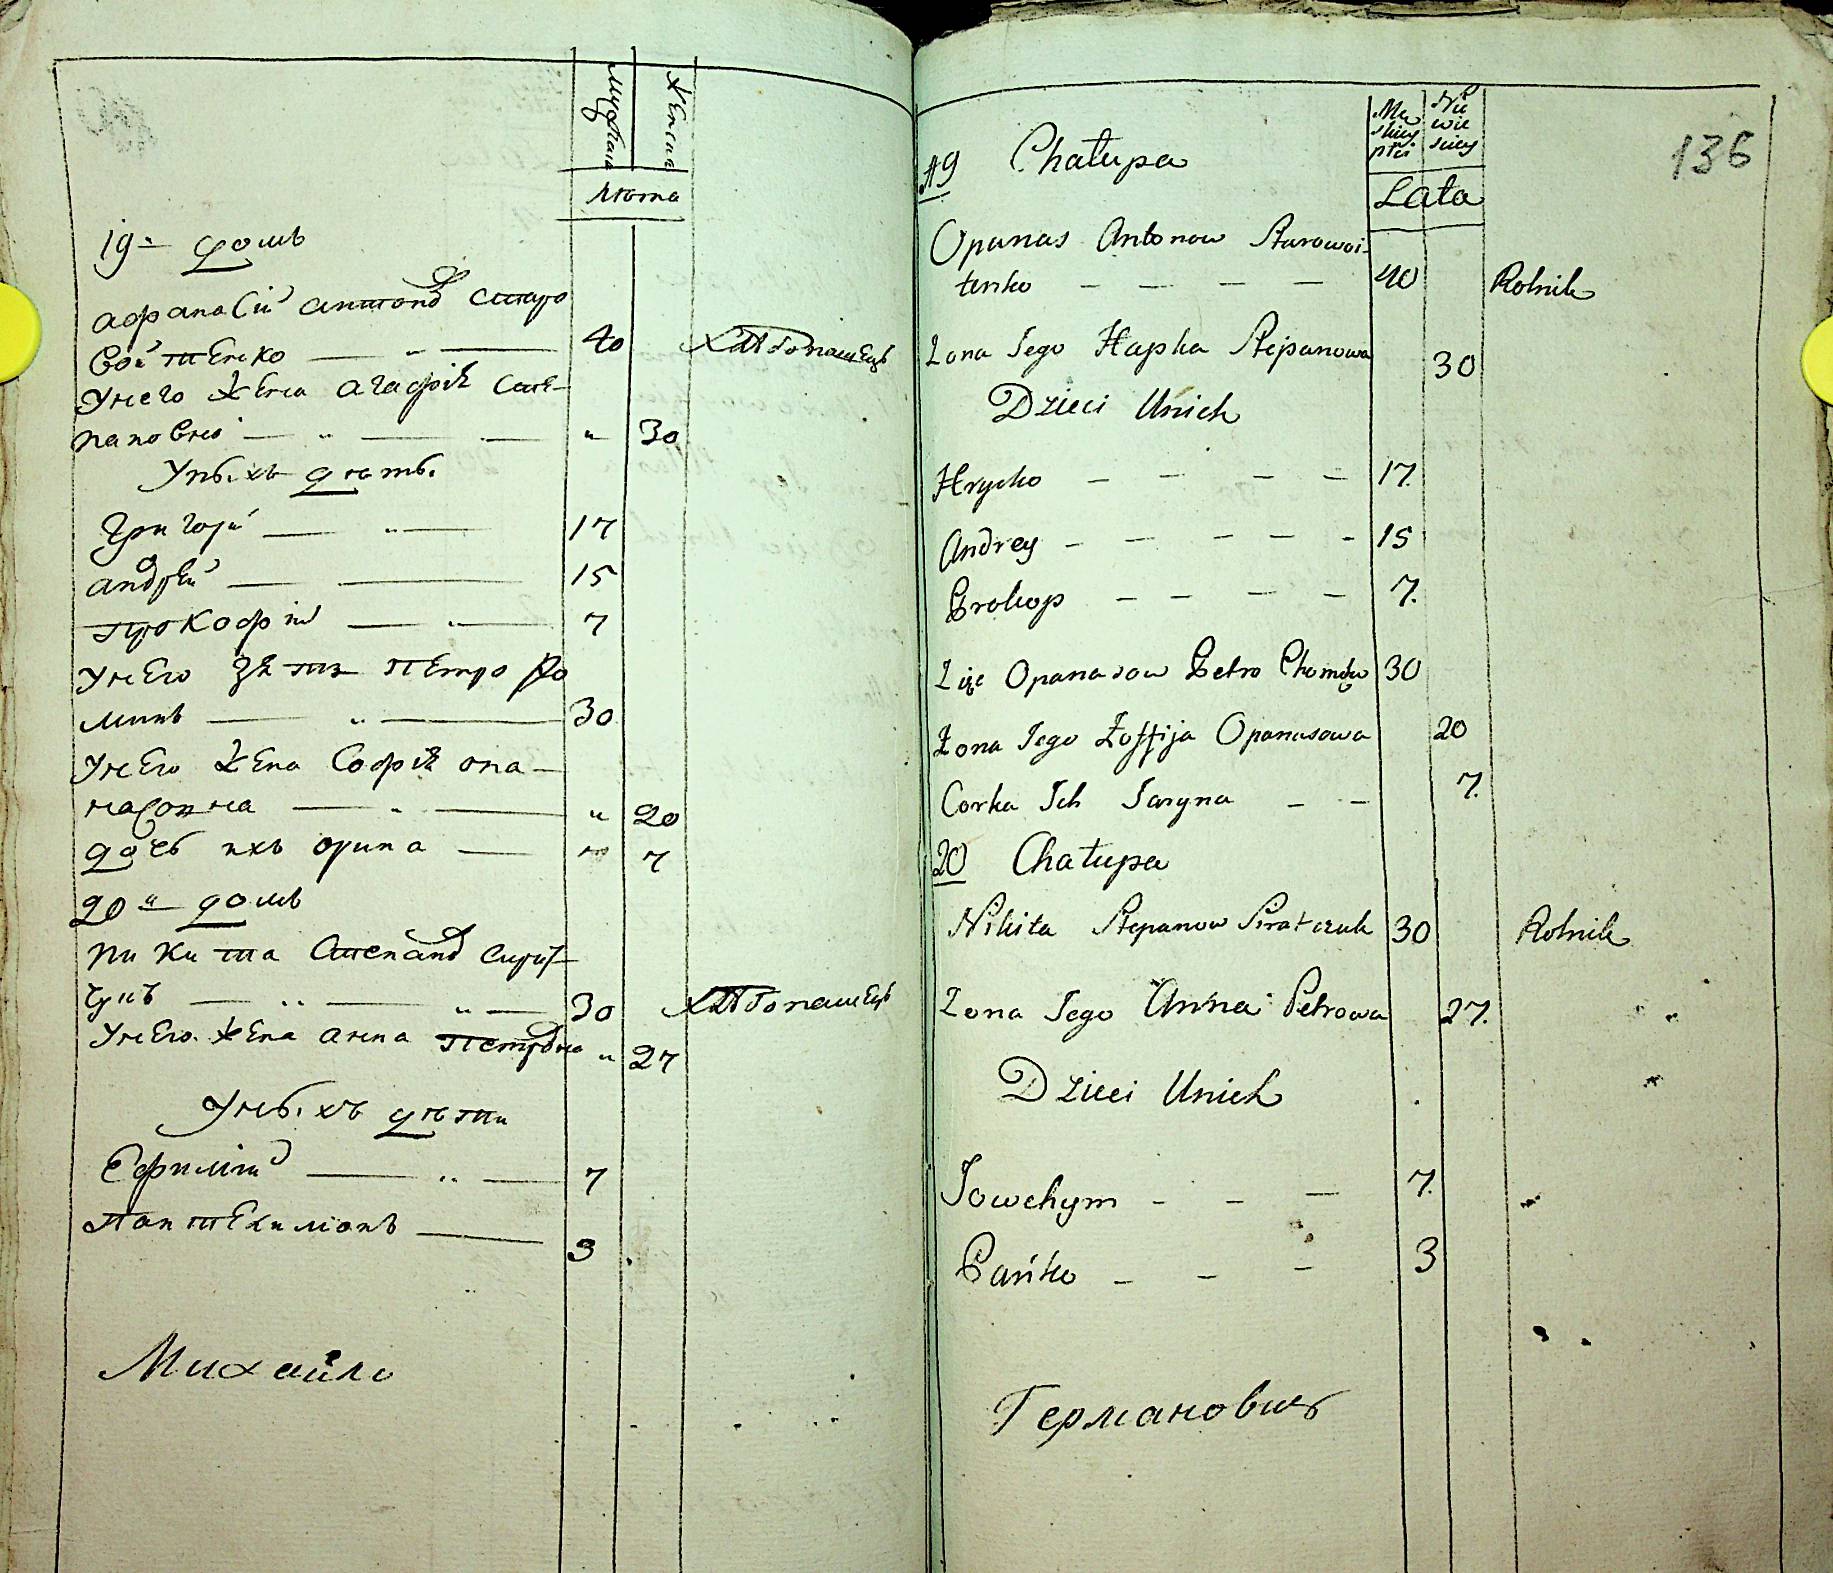 Мужска
Женска
Лѣта
19ъ домъ
Афанасій Антонов Старо
войтенко — „ — 40 Хлѣбопашецъ
У него жена Агафія Сте-
пановна — „ — — „ 30
У нихъ дѣти.
Григорій — „ — 17
Андрей — — 15
Прокофій — „ — 7
У него зять Петро Фо
минъ — „ — 30
У него жена Софія опа-
насовна — „ — „ 20
дочь ихъ орина — „ 7
20ъ домъ
Никита Степанов Сирот
чукъ — „ — „ — 30 Хлѣбопашецъ
У него жена Анна Петровна „ 27
У нихъ дѣти
Ефимій — „ — 7
Пантелимонъ — 3
Михайло
136
Męskiey płci
Niewieściey
Lata
19 Chałupa
Opanas Antonow Starowoi-
tenko — — — — 40 Rolnik
Żona Jego Hapka Stepanowa 30
Dzieci Unich
Hrycko — — — — 17.
Andrey — — — — — 15
Prokop — — — — 7.
Zięć Opanasow Petro Chomów 30
Żona Jego Zoffija Opanasowa 20
Corka Ich Jaryna — — 7.
20 Chałupa
Nikita Stepanow Siratczuk 30 Rolnik
Żona Jego Anna Petrowa 27.
Dzieci Unich
Jowchym — — — 7.
Pańko — — — 3
Германовичъ